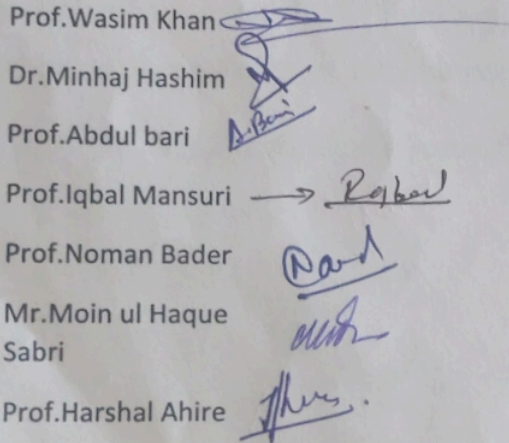 Prof.Wasim Khan
Dr.Minhaj Hashim
Prof.Abdul bari A.Bari
Prof.Iqbal Mansuri →
Prof.Noman Bader
Mr.Moin ul Haque
Sabri
Prof.Harshal Ahire